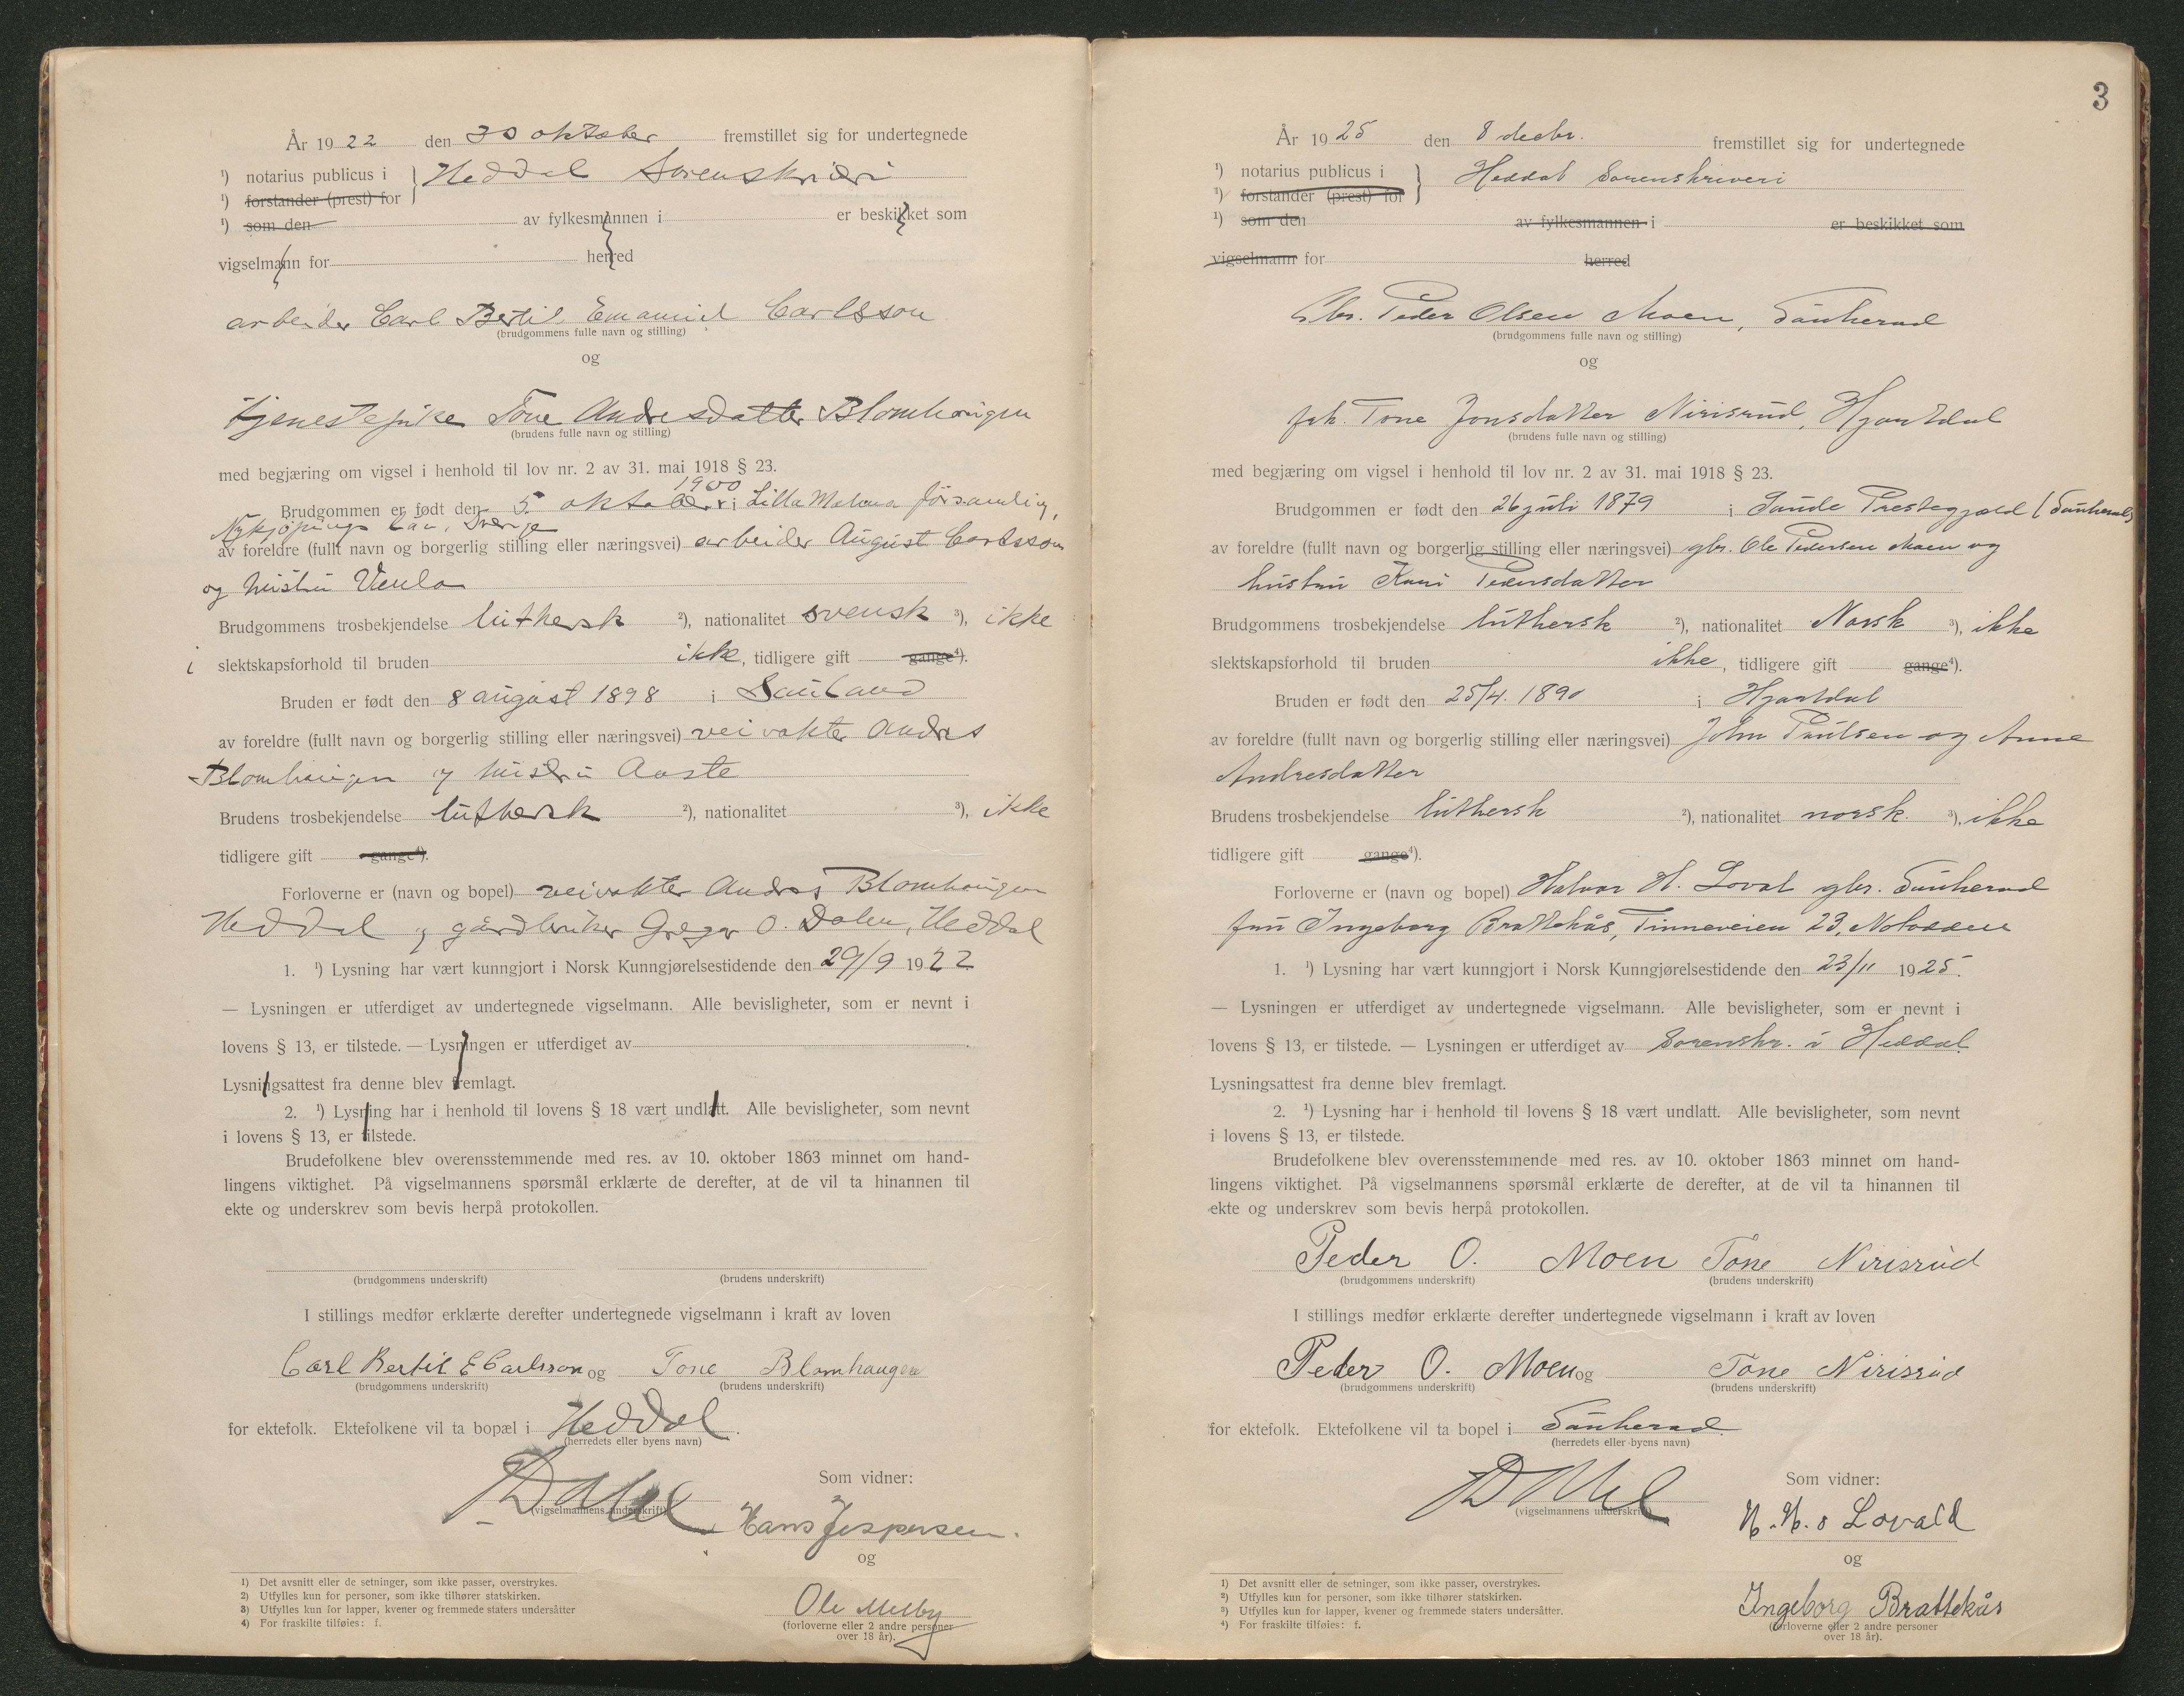 År 1922 den 30 oktober fremstillet sig for undertegnede
¹) notarius publicus i } Heddal Sorenskriveri
¹) forstander (prest) for
¹) som den av fylkesmannen i er beskikket som
vigselmann for herred
arbeider Carl Bertil Emanuel Carlsson
(brudgommens fulle navn og stilling)
og
tjenestepike Tone Andresdatter Blomhaugen
(brudens fulle navn og stilling)
med begjæring om vigsel i henhold til lov nr. 2 av 31. mai 1918 § 23.
1900
Brudgommen er født den 5. oktober i Lilla Malma församling,
Nykjöpings Län, Sverige
av foreldre (fullt navn og borgerlig stilling eller næringsvei) arbeider August Carlsson
og hustru
Brudgommens trosbekjendelse luthersk ²), nationalitet svensk ³), ikke
i slektskapsforhold til bruden ikke, tidligere gift gange⁴).
Bruden er født den 8 august 1898 i Sauland
av foreldre (fullt navn og borgerlig stilling eller næringsvei) veivokter Andres
Blomhaugen og hustru Aaste
Brudens trosbekjendelse luthersk ²), nationalitet ³), ikke
tidligere gift gange⁴).
Forloverne er (navn og bopel) veivokter Andres Blomhaugen
Heddal og gårdbruker Gregar O. Dalen, Heddal
1. ¹) Lysning har vært kunngjort i Norsk Kunngjørelsestidende den 29/9 1922
— Lysningen er utferdiget av undertegnede vigselmann. Alle bevisligheter, som er nevnt i
lovens § 13, er tilstede. — Lysningen er utferdiget av
Lysningsattest fra denne blev fremlagt.
2. ¹) Lysning har i henhold til lovens § 18 vært undlatt. Alle bevisligheter, som nevnt
i lovens § 13, er tilstede.
Brudefolkene blev overensstemmende med res. av 10. oktober 1863 minnet om hand-
lingens viktighet. På vigselmannens spørsmål erklærte de derefter, at de vil ta hinannen til
ekte og underskrev som bevis herpå protokollen.
(brudgommens underskrift) (brudens underskrift)
I stillings medfør erklærte derefter undertegnede vigselmann i kraft av loven
Carl Bertil E Carlsson og Tone Blomhaugen
(brudgommens underskrift) (brudens underskrift)
for ektefolk. Ektefolkene vil ta bopæl i Heddal.
(herredets eller byens navn)
Som vidner:
(vigselmannens underskrift)
Hans Jespersen.
og
Ole Melby
(forloverne eller 2 andre personer
over 18 år).
1) Det avsnitt eller de setninger, som ikke passer, overstrykes.
2) Utfylles kun for personer, som ikke tilhører statskirken.
3) Utfylles kun for lapper, kvener og fremmede staters undersåtter
4) For fraskilte tilføies: f.
3
År 1925 den 8 decbr. fremstillet sig for undertegnede
¹) notarius publicus i } Heddal Sorenskriveri
¹) forstander (prest) for
¹) som den av fylkesmannen i er beskikket som
vigselmann for herred
Gbr. Peder Olsen Moen, Sauherad
(brudgommens fulle navn og stilling)
og
frk. Tone Jonsdatter Nirisrud, Hjartdal
(brudens fulle navn og stilling)
med begjæring om vigsel i henhold til lov nr. 2 av 31. mai 1918 § 23.
Brudgommen er født den 26 juli 1879 i Saude Prestegjæld (Sauherad)
av foreldre (fullt navn og borgerlig stilling eller næringsvei) gbr. Ole Pedersen Moen og
hustru Kari Pedersdatter
Brudgommens trosbekjendelse luthersk ²), nationalitet Norsk ³), ikke
slektskapsforhold til bruden ikke, tidligere gift gange⁴).
Bruden er født den 25/4. 1890 i Hjartdal
av foreldre (fullt navn og borgerlig stilling eller næringsvei) John Paulsen og Anne
Andresdatter
Brudens trosbekjendelse luthersk ²), nationalitet norsk. ³), ikke
tidligere gift gange⁴).
Forloverne er (navn og bopel) Halvor H. Loval gbr. Sauherad
fru Ingeborg Brattekås, Tinneveien 23, Notodden
1. ¹) Lysning har vært kunngjort i Norsk Kunngjørelsestidende den 23/11 1925.
— Lysningen er utferdiget av undertegnede vigselmann. Alle bevisligheter, som er nevnt i
lovens § 13, er tilstede. — Lysningen er utferdiget av Sorenskr. i Heddal.
Lysningsattest fra denne blev fremlagt.
2. ¹) Lysning har i henhold til lovens § 18 vært undlatt. Alle bevisligheter, som nevnt
i lovens § 13, er tilstede.
Brudefolkene blev overensstemmende med res. av 10. oktober 1863 minnet om hand-
lingens viktighet. På vigselmannens spørsmål erklærte de derefter, at de vil ta hinannen til
ekte og underskrev som bevis herpå protokollen.
Peder O. Moen Tone Nirisrud
(brudgommens underskrift) (brudens underskrift)
I stillings medfør erklærte derefter undertegnede vigselmann i kraft av loven
Peder O. Moen og Tone Nirisrud
(brudgommens underskrift) (brudens underskrift)
for ektefolk. Ektefolkene vil ta bopel i Sauherad.
(herredets eller byens navn)
Som vidner:
(vigselmannens underskrift)
H. H. s Lovald
og
Ingeborg Brattekås
(forloverne eller 2 andre personer
over 18 år).
1) Det avsnitt eller de setninger, som ikke passer, overstrykes.
2) Utfylles kun for personer, som ikke tilhører statskirken.
3) Utfylles kun for lapper, kvener og fremmede staters undersåtter.
4) For fraskilte tilføies: f.